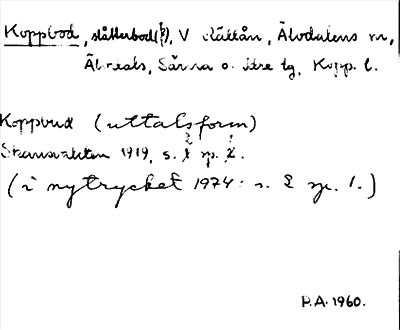 Koppbod, slåtterbod(?), V Rällån, Älvdalens sn,
Älvdals, Särna o. Idre tg, Kopp. l.
Koppbud (uttalsform)
1919, s. 2 sp. 1.
(i nytrycket 1974: s. 2 sp. 1.)
P.A. 1960.